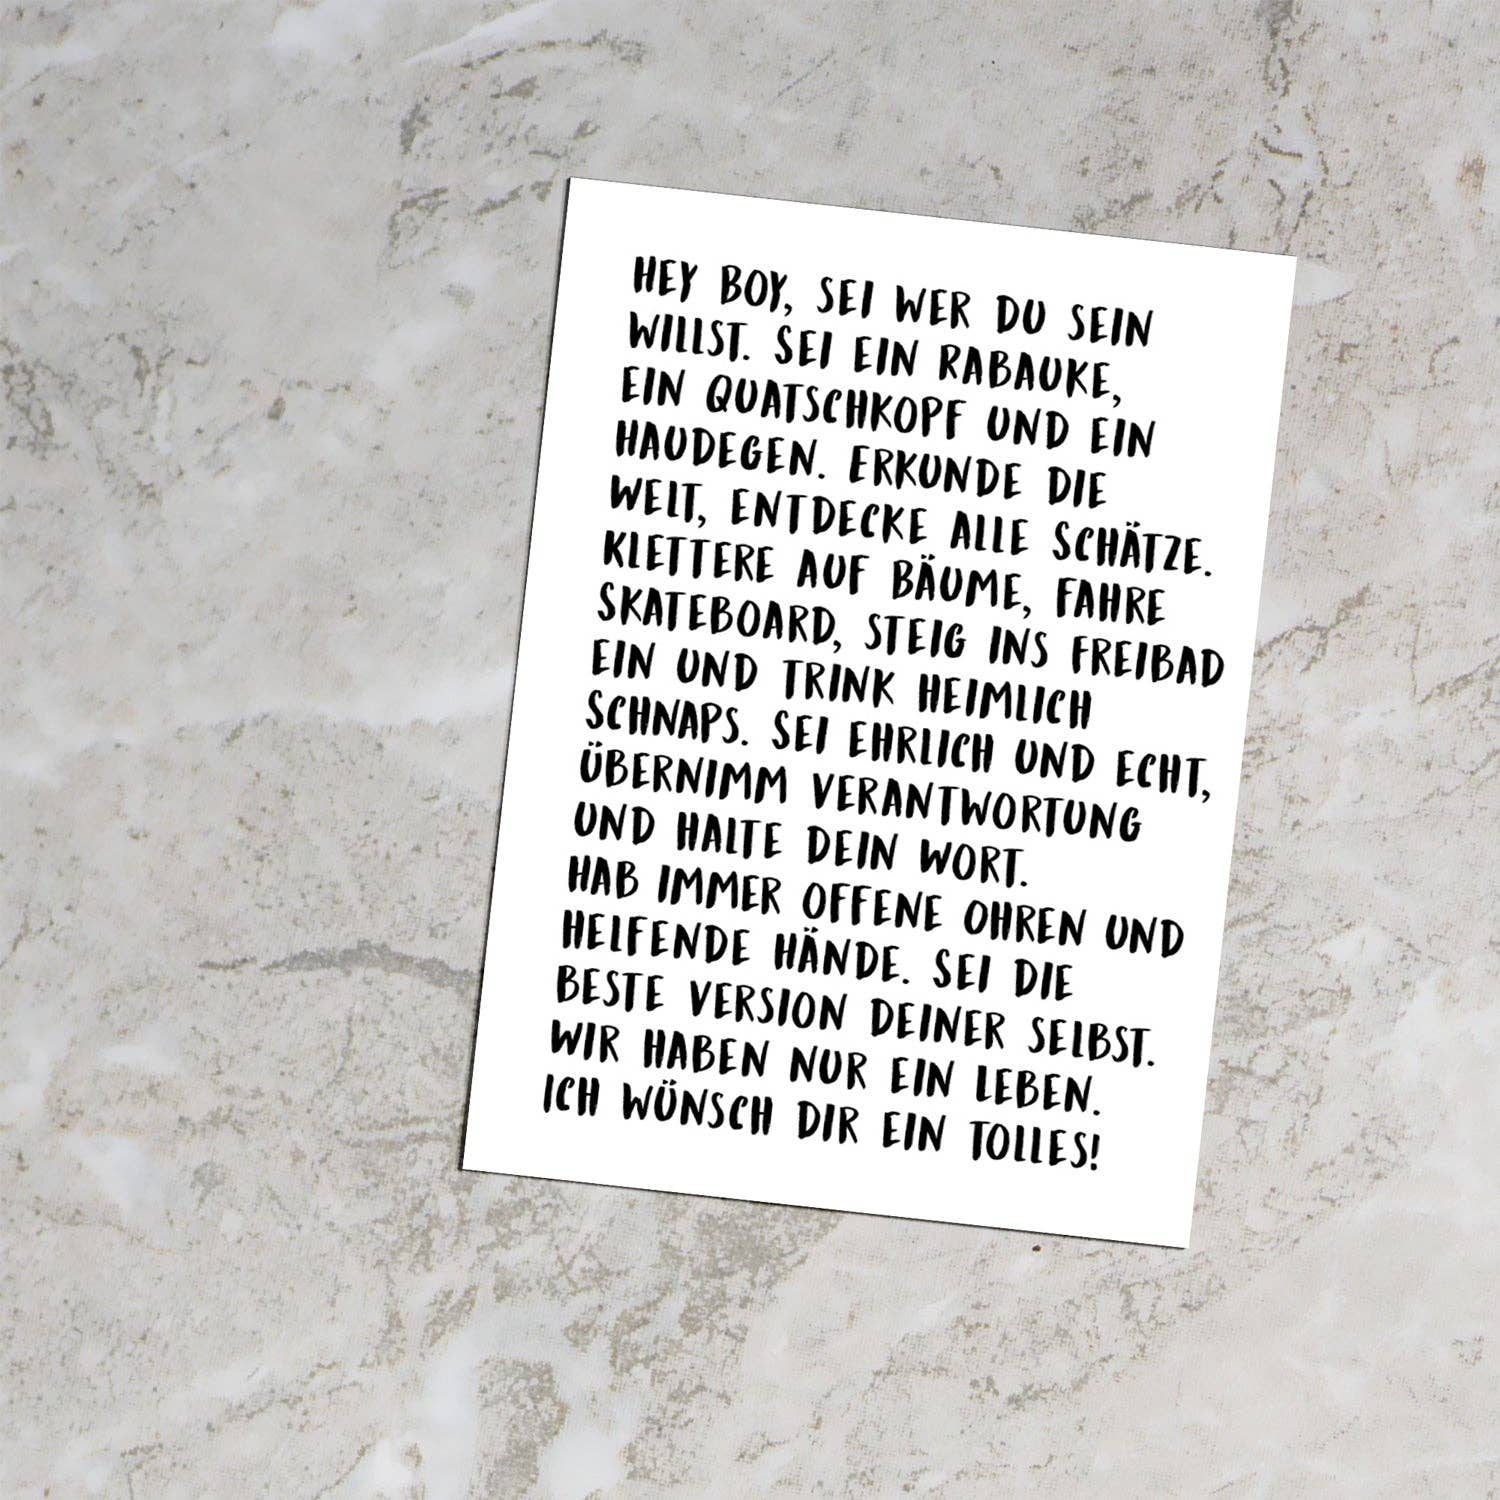 HEY BOY, SEI WER DU SEIN
WILLST. SEI EIN RABAUKE,
EIN QUATSCHKOPF UND EIN
HAUDEGEN. ERKUNDE DIE
WELT, ENTDECKE ALLE SCHÄTZE.
KLETTERE AUF BÄUME, FAHRE
SKATEBOARD, STEIG INS FREIBAD
EIN UND TRINK HEIMLICH
SCHNAPS. SEI EHRLICH UND ECHT,
ÜBERNIMM VERANTWORTUNG
UND HALTE DEIN WORT.
HAB IMMER OFFENE OHREN UND
HELFENDE HÄNDE. SEI DIE
BESTE VERSION DEINER SELBST.
WIR HABEN NUR EIN LEBEN.
ICH WÜNSCH DIR EIN TOLLES!